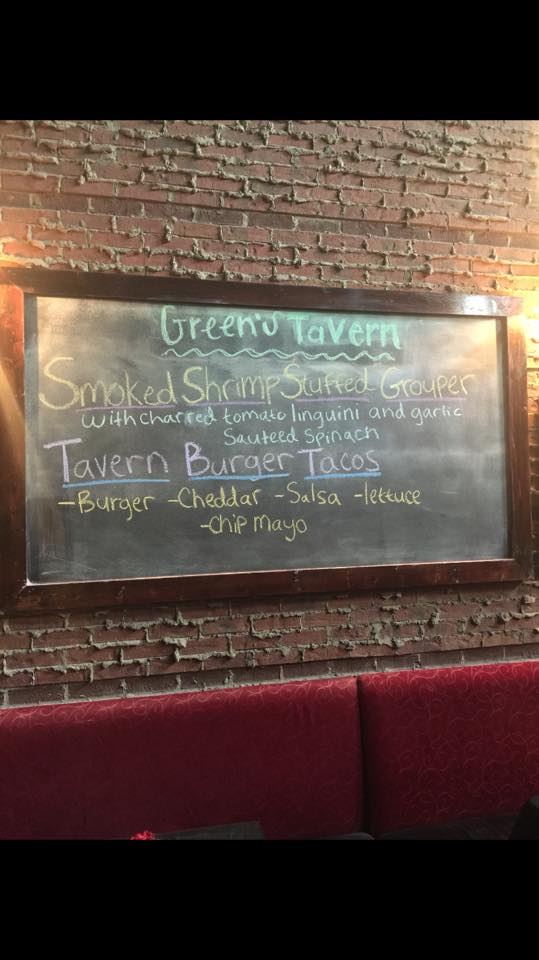 Green's Tavern
Smoked Shrimp Stuffed Grouper
with charred tomato linguini and garlic
Sauteed Spinach
Tavern Burger Tacos
-Burger -Cheddar -Salsa -lettuce
-Chip mayo